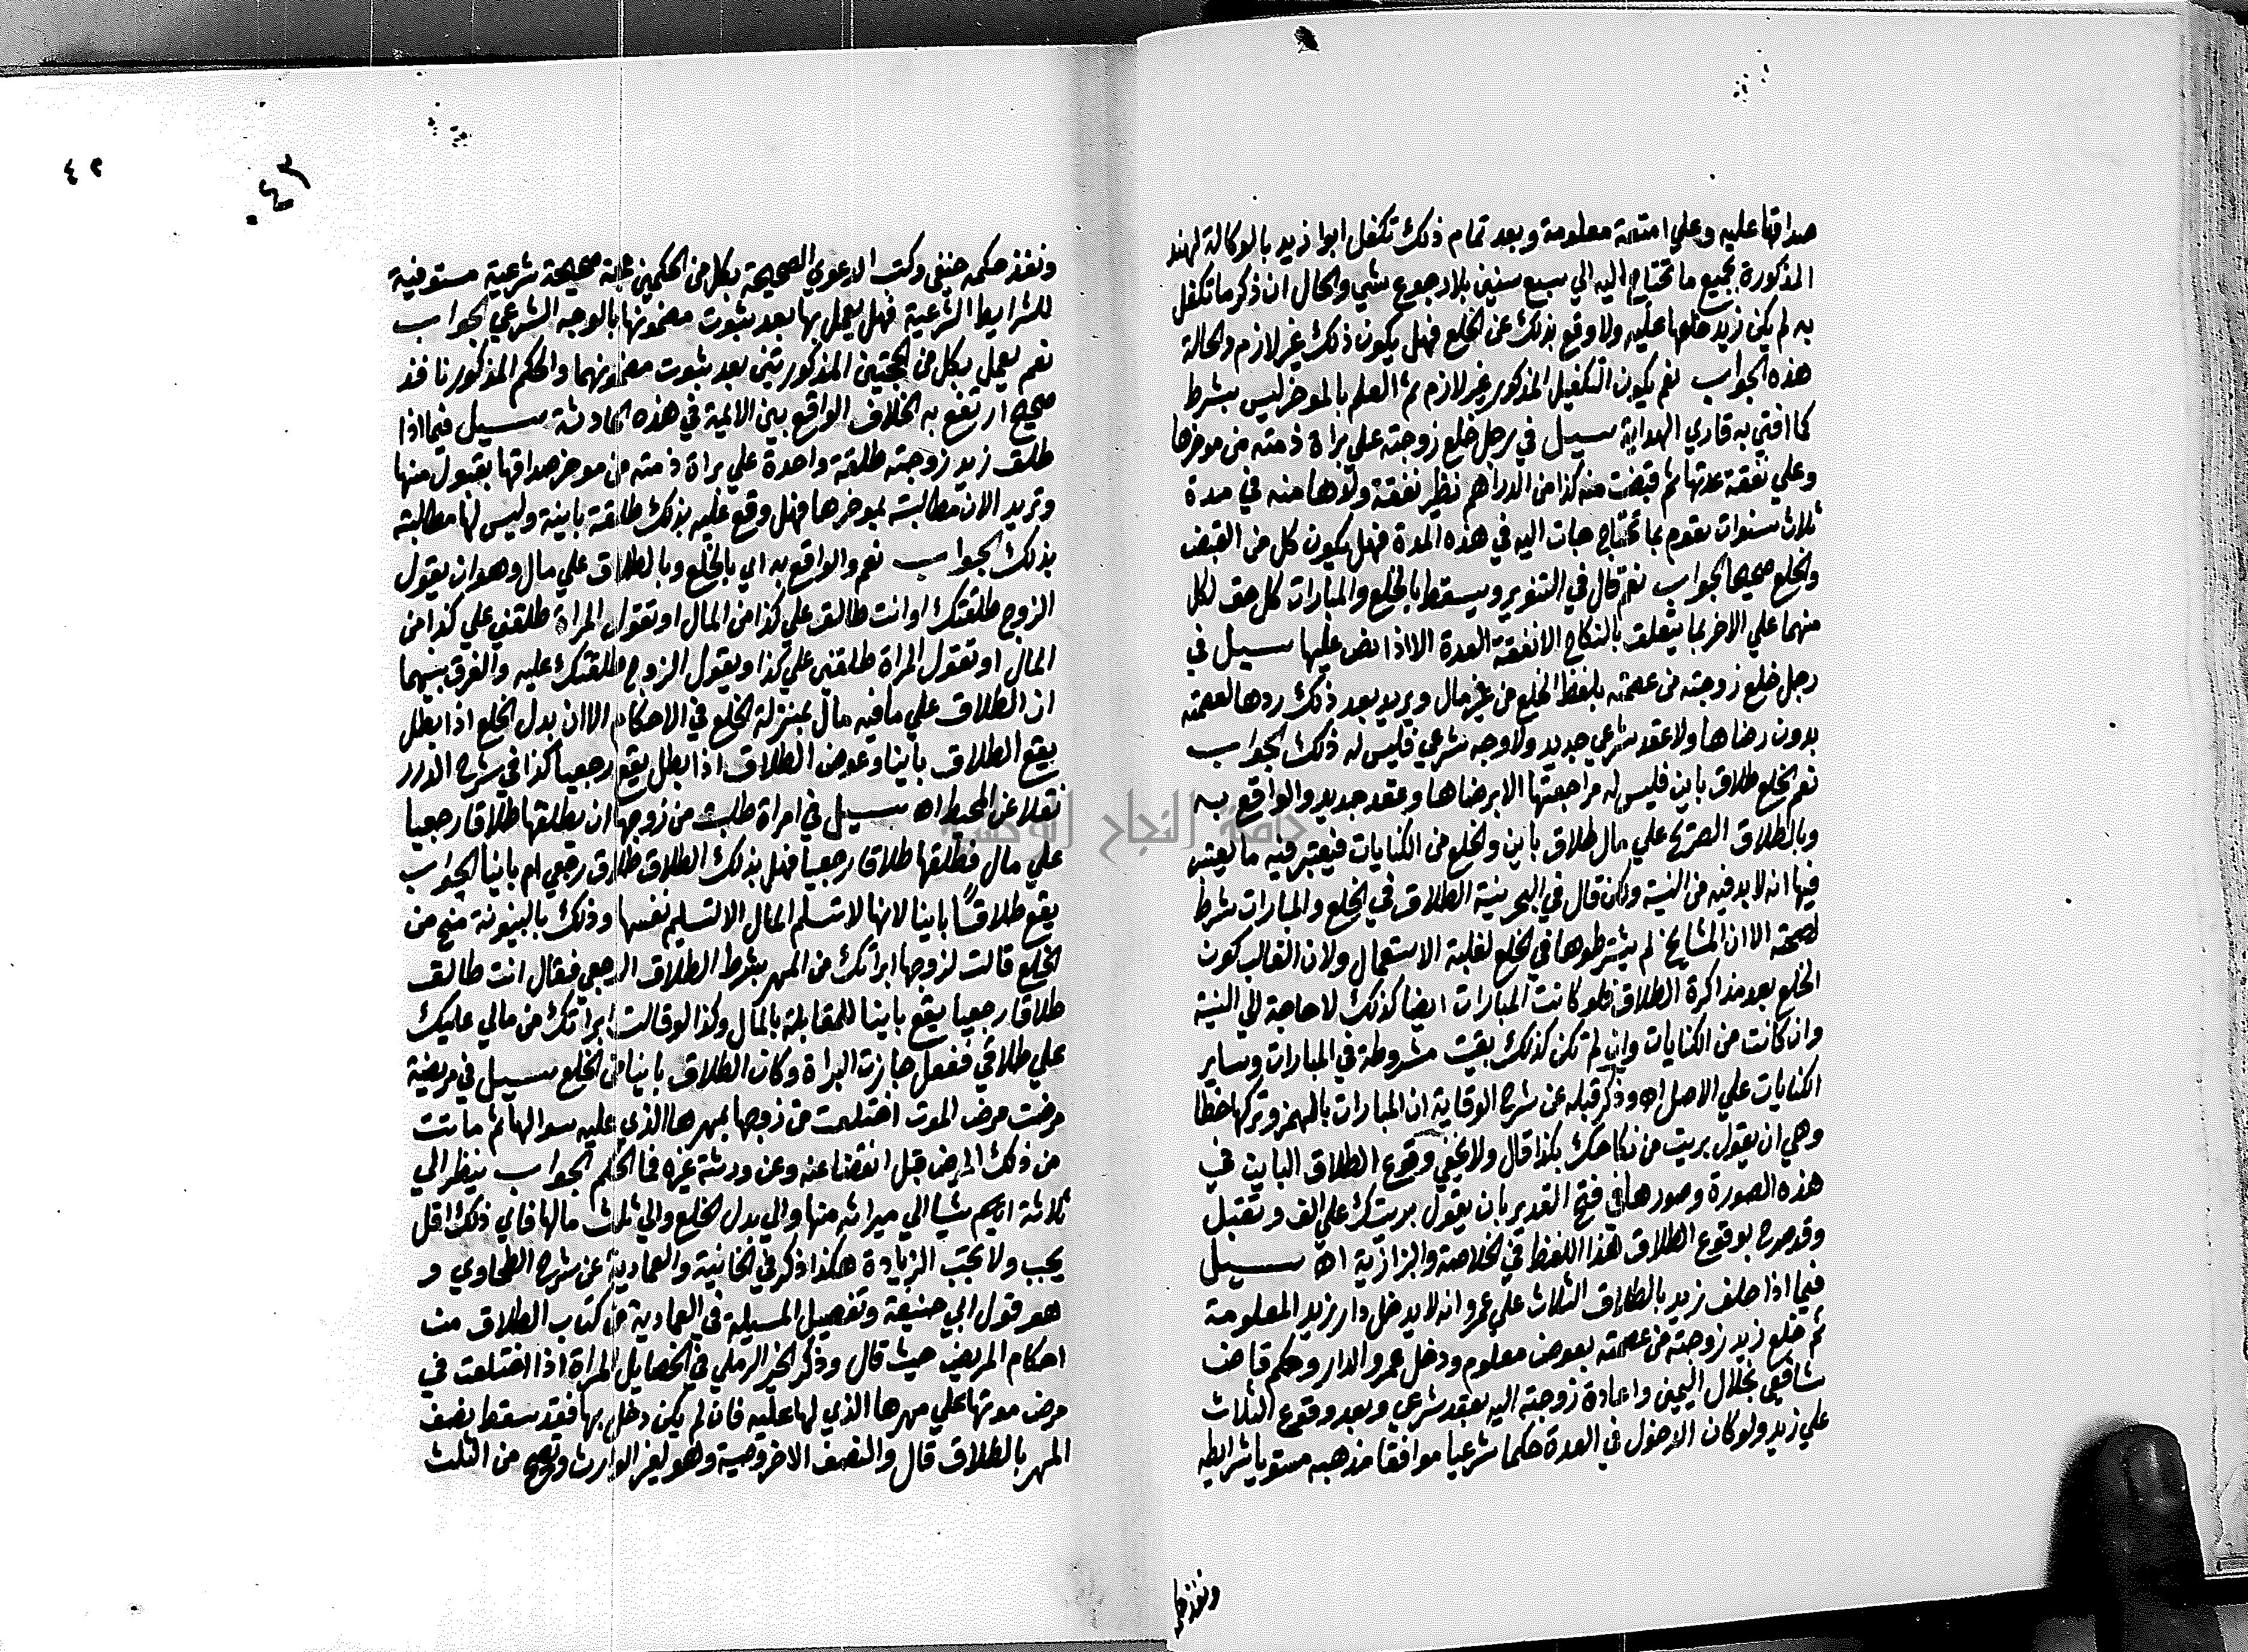 صداقها عليه وعلي امتعة معلومة وبعد تمام ذلك تكفل ابوا زيد بالوكالة لهند
المذكورة بجميع ما تحتاج اليه الي سبع سنين بلا رجوع بشي والحال ان ذكر ما تكفل
به لم يكن زيد خلعها عليه ولا وقع بذلك عن الخلع فهل يكون ذلك غير لازم والحالة
هذه الجواب نعم يكون التكفيل المذكور غير لازم ثم العلم بالموخر ليس بشرط
كما افتي به قاري الهداية سيل في رجل خلع زوجته علي براة ذمته من موخرها
وعلي نفقة عدتها ثم قبضت منه كذا من الدراهم نظير نفقة ولدها منه في مدة
ثلاث سنوات تقوم بما تحتاج اليه في هذه المدة فهل يكون كل من القبض
والخلع صحيحا الجواب نعم قال في التنوير ويسقط بالخلع والمبارات كل حق لكل
منهما علي الاخر بما يتعلق بالنكاح الا نفقة العدة الا اذا نص عليها سيل في
رجل خلع زوجته من عصمته بلفظ الخلع من غير مال ويريد بعد ذلك ردها لعصمته
بدون رضاها ولا عقد شرعي جديد ولا وجه شرعي فليس له ذلك الجواب
نعم الخلع طلاق باين فليس له مراجعتها الا برضاها وعقد جديد والواقع به
وبالطلاق الصريح علي مال طلاق باين والخلع من الكنايات فيعتبر فيه ما يعتبر
فيها انه لا بد فيه من النية ولكن قال في البحر نية الطلاق في الخلع والمبارات شرط
لصحته الا ان المشايخ لم يشترطوها في الخلع لغلبة الاستعمال ولان الغالب كون
الخلع بعد مذاكرة الطلاق فلو كانت المبارات ايضا كذلك لا حاجة الي النية
وان كانت من الكنايات وان لم تكن كذلك بقيت مشروطة في المبارات وساير
الكنايات علي الاصل اه وذكر قبله عن شرح الوقاية ان المبارات بالهمز وتركها خطا
وهي ان يقول بريت من نكاحك بكذا قال ولا يخفي وقوع الطلاق الباين في
هذه الصورة وصورها في فتح القدير بان يقول بريتك علي الف وتقبل
وقد صرح بوقوع الطلاق بهذا اللفظ في الخلاصة والبزازية اه سيل
فيما اذا حلف زيد بالطلاق الثلاث علي عمرو انه لا يدخل دار زيد المعلومة
ثم خلع زيد زوجته من عصمته بعوض معلوم ودخل عمرو الدار وحكم قاض
شافعي بخلال اليمين واعادة زوجته اليه بعقد شرعي وبعد وقوع الثلاث
علي زيد ولو كان الدخول في العدة حكما شرعيا موافقا مذهبه مستوفيا شرايطه
ونفذ حكمه
٤٢
٤٣
ونفذ حكمه حنفي وكتب الدعوي الصحيحة بكل من الحكمين حجة صحيحة شرعية مستوفية
للشرايط الشرعية فهل يعمل بها بعد ثبوت مضمونها بالوجه الشرعي الجواب
نعم يعمل بكل من الحجتين المذكورتين بعد ثبوت مضمونهما والحكم المذكور نافذ
صحيح ارتفع به الخلاف الواقع بين الايمة في هذه الحادثة سيل فيما اذا
طلق زيد زوجته طلقة واحدة علي براة ذمته من موخر صداقها بقبول منها
وتريد الان مطالبته بموخرها فهل وقع عليه بذلك طلقة باينة وليس لها مطالبته
بذلك الجواب نعم والواقع به اي بالخلع وبالطلاق علي مال وهو ان يقول
الزوج طلقتك او انت طالق علي كذا من المال او تقول المراة طلقني علي كذا من
المال او تقول المراة طلقني علي كذا ويقول الزوج طلقتك عليه والفرق بينهما
ان الطلاق علي ما فيه مال بمنزلة الخلع في الاحكام الا ان بدل الخلع اذا بطل
يقع الطلاق باينا وعوض الطلاق اذا بطل يقع رجعيا كذا في شرح الدرر
نقلا عن المحيط اه سيل في امراة طلبت من زوجها ان يطلقها طلاقا رجعيا
علي مال فطلقها طلاقا رجعيا فهل بذلك الطلاق طلاق رجعي ام باينا الجواب
يقع طلاقا باينا لانها لا تسلم المال الا لتسليم نفسها وذلك بالبينونة منح من
الخلع قالت لزوجها ابراتك من المهر بشرط الطلاق الرجعي فقال انت طالق
طلاقا رجعيا يقع باينا للمقابلة بالمال وكذا لو قالت ابراتك من مالي عليك
علي طلاقي ففعل جازت البراة وكان الطلاق باينا من الخلع سيل في مريضة
مرضت مرض الموت اختلعت من زوجها بمهرها الذي عليه سوالها ثم ماتت
من ذلك المرض قبل انقضا عنه وعن ورثة غيره فما الحكم الجواب ينظر الي
ثلاثة اشيا الي ميراثه منها والي بدل الخلع والي ثلث مالها فاي ذلك اقل
يجب ولا تجب الزيادة هكذا ذكر في الخانية والعمادية عن شرح الطحاوي و
هو قول ابي حنيفة وتفصيل المسيلة في العمادية من كتاب الطلاق من
احكام المريض حيث قال وذكر الخير الرملي في الخصايل المراة اذا اختلعت في
مرض موتها علي مهرها الذي لها عليه فان لم يكن دخل بها فقد سقط نصف
المهر بالطلاق قال والنصف الاخر وصية وهو لغير الوارث وتصح من الثلث
جامعة النجاح الوطنية